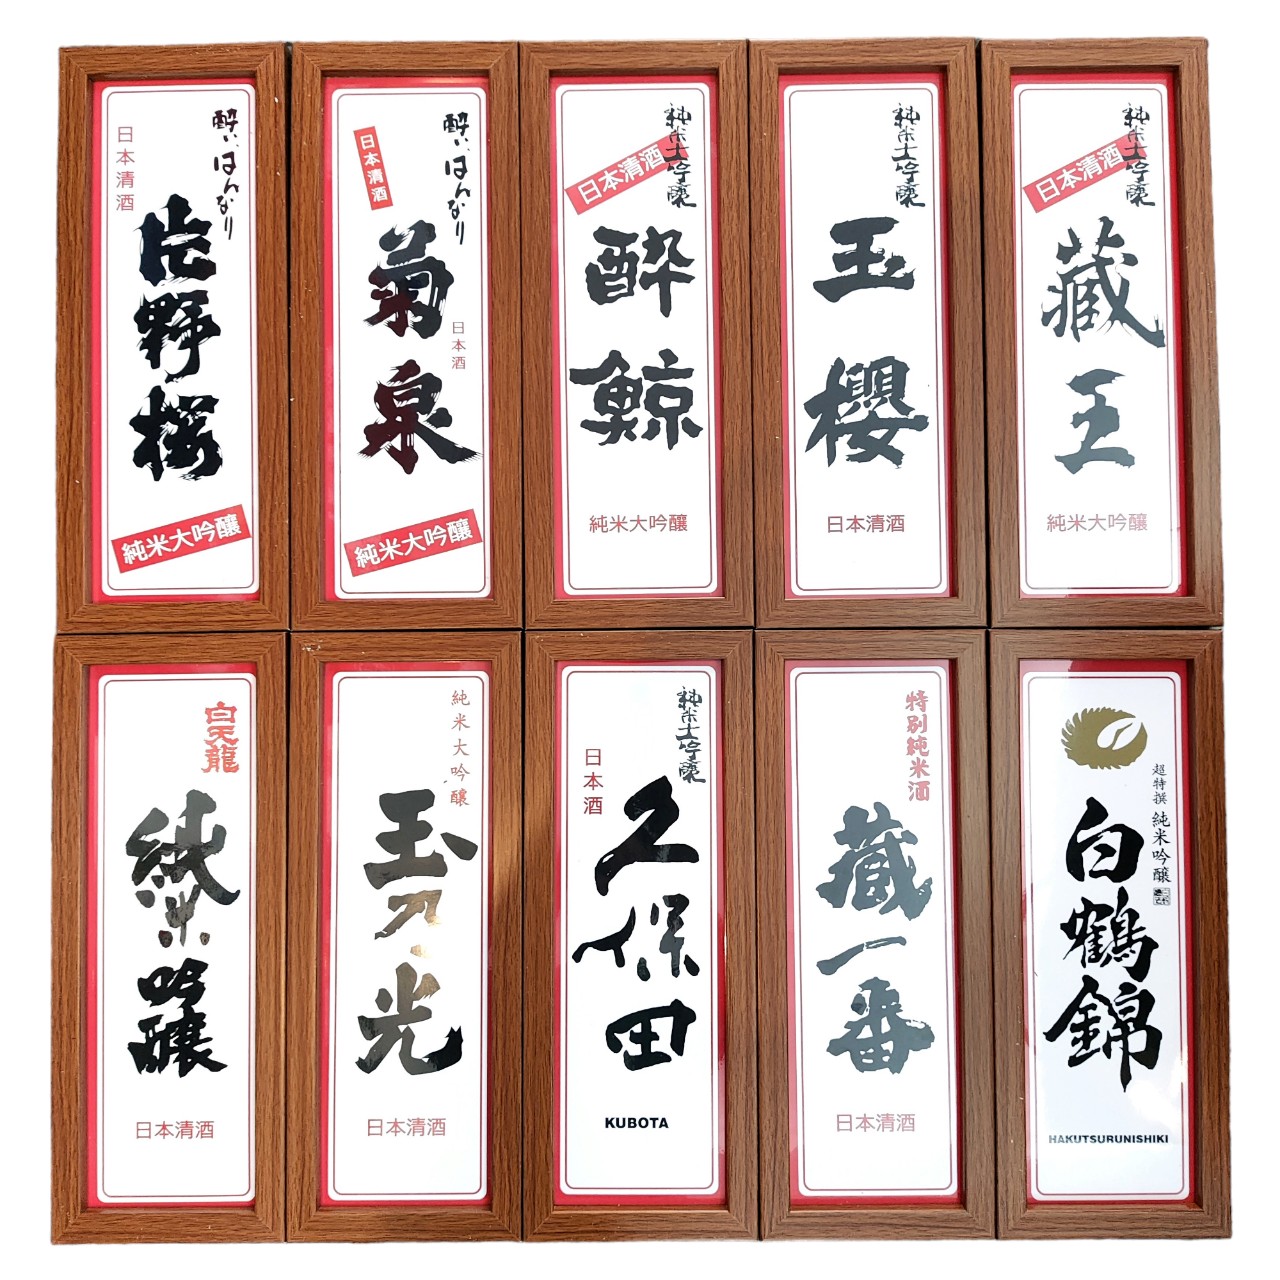 酔い はんなり
日本清酒
片野桜
純米大吟醸
酔い はんなり
日本清酒
菊泉
日本酒
純米大吟醸
純米大吟醸
日本清酒
酔鯨
純米大吟醸
純米大吟醸
玉櫻
日本清酒
純米大吟醸
日本清酒
蔵王
純米大吟醸
白天龍
純米吟醸
日本清酒
純米大吟醸
玉乃光
日本清酒
純米大吟醸
日本酒
久保田
KUBOTA
特別純米酒
蔵一番
日本清酒
超特撰 純米吟醸
白鶴錦
HAKUTSURUNISHIKI